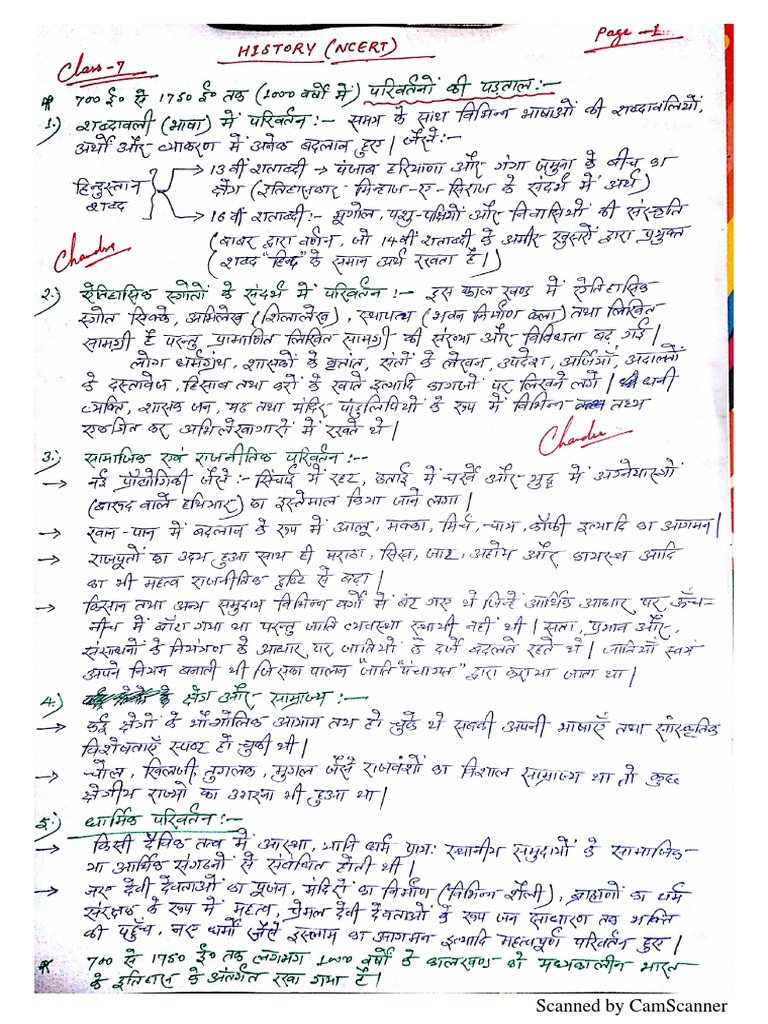 Page -1
HISTORY (NCERT)
Class-7
* 700 ई० से 1750 ई० तक (1000 वर्षों में) परिवर्तनों की पड़ताल:-
1.) शब्दावली (भाषा) में परिवर्तन:- समय के साथ विभिन्न भाषाओं की शब्दावलियों,
अर्थों और व्याकरण में अनेक बदलाव हुए। जैसे:-
→ 13वीं शताब्दी → पंजाब हरियाणा और गंगा जमुना के बीच का
हिन्दुस्तान शब्द
क्षेत्र (इतिहासकार-मिन्हाज-ए-सिराज के संदर्भ में अर्थ)
→ 16वीं शताब्दी:- भूगोल, पशु-पक्षियों और निवासियों की संस्कृति
(बाबर द्वारा वर्णन, जो 14वीं शताब्दी के अमीर खुसरो द्वारा प्रयुक्त
(शब्द "हिन्द" के समान अर्थ रखता है।)
Chandra
2.) ऐतिहासिक स्त्रोतों के संदर्भ में परिवर्तन:- इस काल खण्ड में ऐतिहासिक
स्त्रोत सिक्के, अभिलेख (शिलालेख), स्थापत्य (भवन निर्माण कला) तथा लिखित
सामग्री है परन्तु प्रामाणित लिखित सामग्री की संख्या और विविधता बढ़ गई।
लोग धर्मग्रंथ, शासकों के वृत्तांत, संतों के लेखन, उपदेश, अर्जियाँ, अदालतों
के दस्तावेज, हिसाब तथा करों के खाते इत्यादि कागजों पर लिखने लगे। धनी
व्यक्ति, शासक जन, मठ तथा मंदिर पांडुलिपियों के रूप में विभिन्न तथ्य
एकत्रित कर अभिलेखागारों में रखते थे।
Chandra
3.) सामाजिक एवं राजनीतिक परिवर्तन:--
→ नई प्रौद्योगिकी जैसे:- सिंचाई में रहट, कताई में चर्खे और युद्ध में अग्नेयास्त्रों
(बारूद वाले हथियार) का इस्तेमाल किया जाने लगा।
→ खान-पान में बदलाव के रूप में आलू, मक्का, मिर्च, चाय, कॉफी इत्यादि का आगमन।
→ राजपूतों का उदय हुआ साथ ही मराठा, सिख, जाट, अहोम और कायस्थ आदि
का भी महत्व राजनीतिक दृष्टि से बढ़ा।
→ किसान तथा अन्य समुदाय विभिन्न वर्गों में बंट गए थे जिन्हें आर्थिक आधार पर ऊँच-
नीच में बाँटा गया था परन्तु जाति व्यवस्था स्थायी नहीं थी। सत्ता, प्रभाव और
संसाधनों के नियंत्रण के आधार पर जातियों के दर्जे बदलते रहते थे। जातियाँ स्वयं
अपने नियम बनाती थी जिसका पालन "जाति पंचायत" द्वारा कराया जाता था।
4.) क्षेत्र और साम्राज्य:-
→ कई क्षेत्रों के भौगोलिक आयाम तय हो चुके थे सबकी अपनी भाषाएँ तथा सांस्कृतिक
विशेषताएँ स्पष्ट हो चुकी थी।
→ चोल, खिलजी, तुगलक, मुगल जैसे राजवंशों का विशाल साम्राज्य था तो कुछ
क्षेत्रीय राज्यों का उभरना भी हुआ था।
5.) धार्मिक परिवर्तन:-
→ किसी दैविक तत्व में आस्था, यानि धर्म प्रायः स्थानीय समुदायों के सामाजिक
या आर्थिक संगठनों से संबंधित होती थी।
→ नए देवी देवताओं का पूजन, मंदिरों का निर्माण (विभिन्न शैली), ब्राह्मणों का धर्म
संरक्षक के रूप में महत्व, प्रेमल देवी देवताओं के रूप जन साधारण तक भक्ति
की पहुँच, नए धर्मों जैसे इस्लाम का आगमन इत्यादि महत्वपूर्ण परिवर्तन हुए।
* 700 से 1750 ई० तक लगभग 1000 वर्षों के कालखण्ड को मध्यकालीन भारत
के इतिहास के अंतर्गत रखा गया है।
Scanned by CamScanner